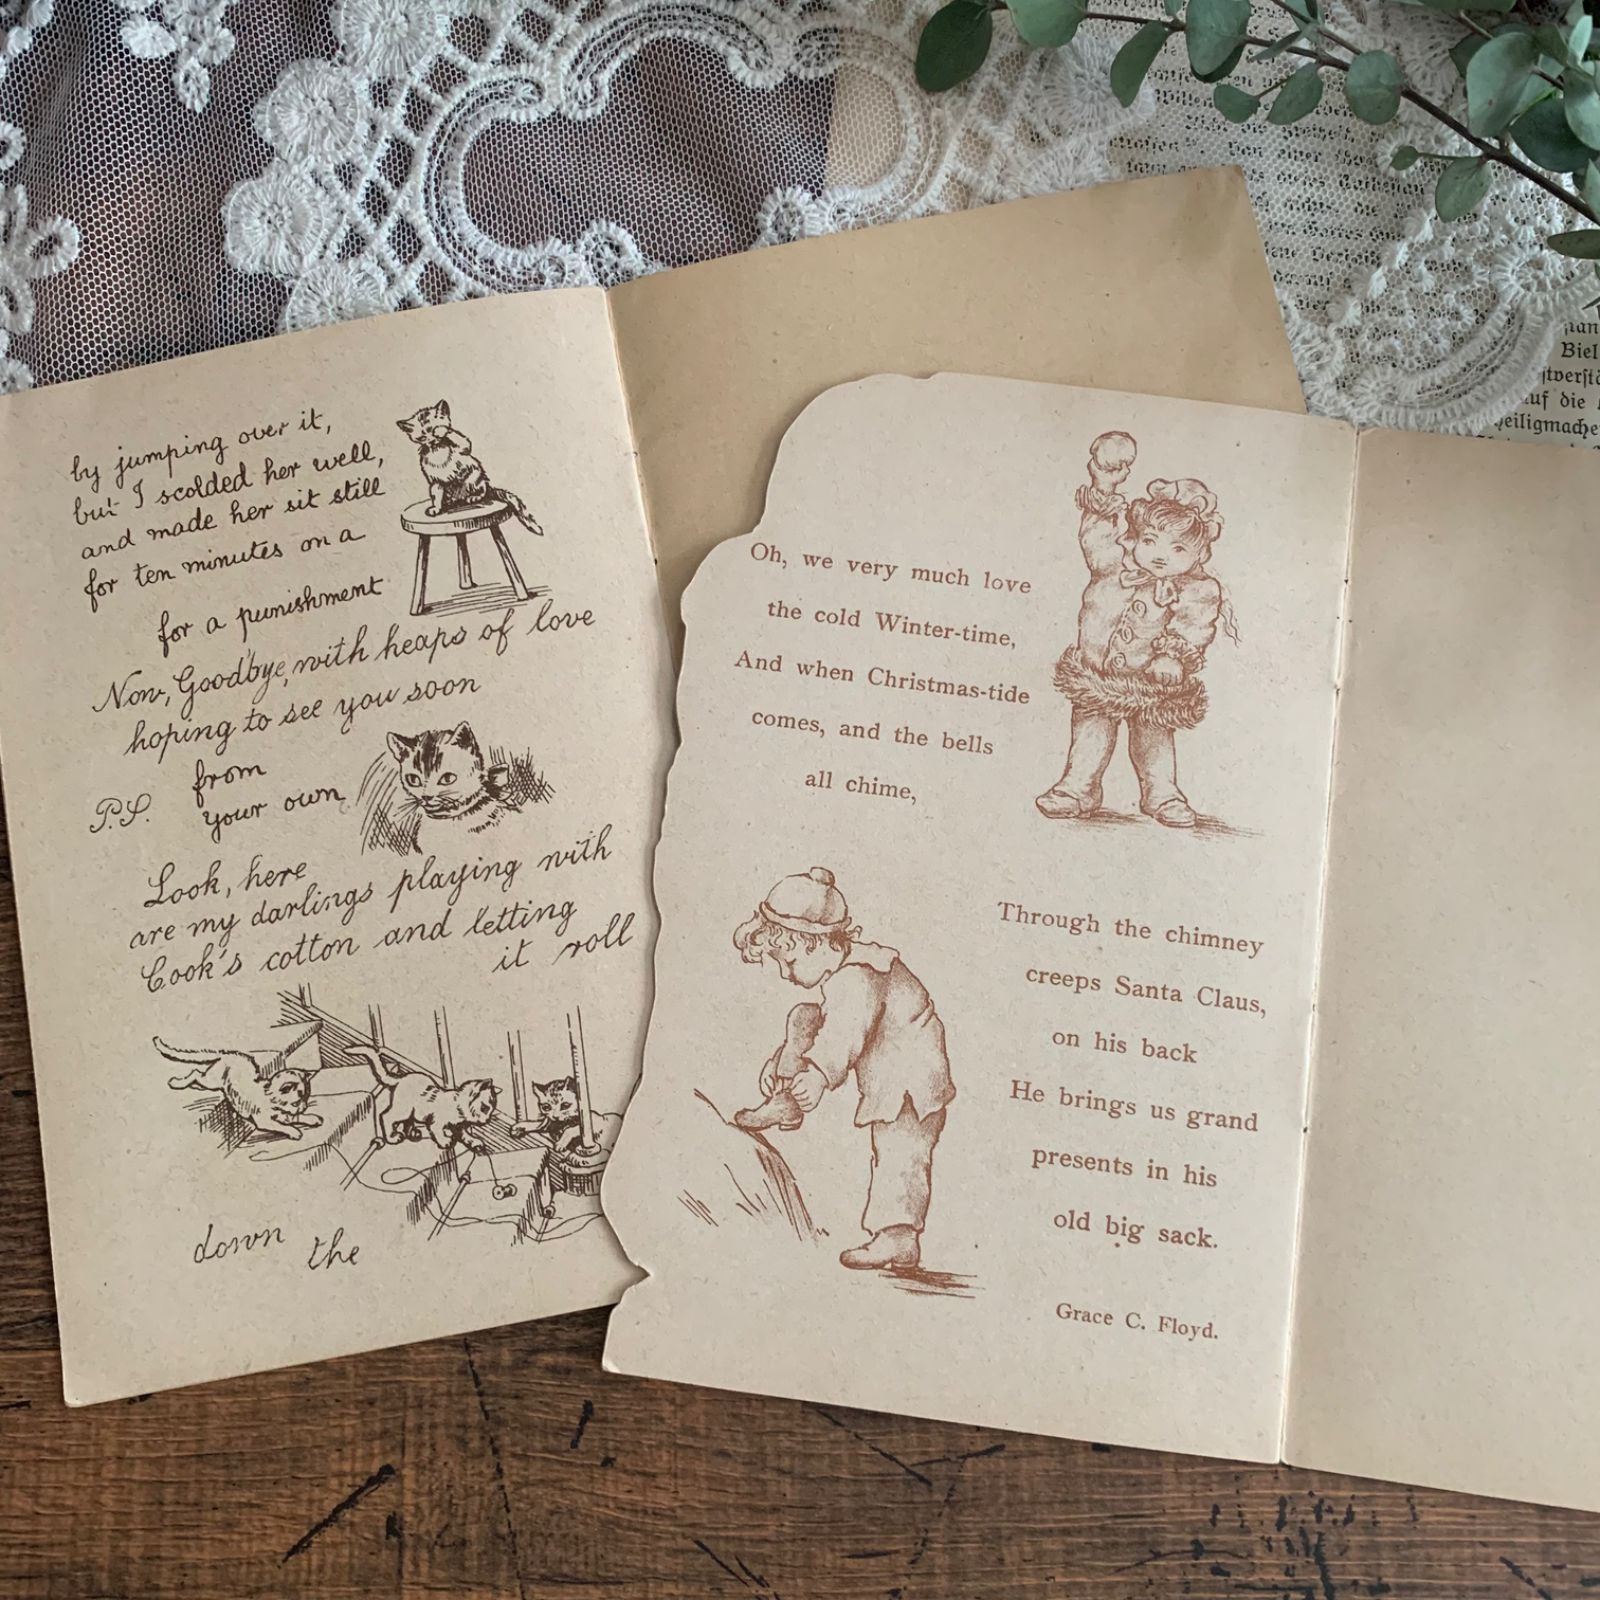 by jumping over it,
but I scolded her well,
and made her sit still
for ten minutes on a
for a punishment
Now, Goodbye, with heaps of love
hoping to see you soon
from
your own
P.S.
Look, here
are my darlings playing with
Cook's cotton and letting
it roll
down the
Oh, we very much love
the cold Winter-time,
And when Christmas-tide
comes, and the bells
all chime,
Through the chimney
creeps Santa Claus,
on his back
He brings us grand
presents in his
old big sack.
Grace C. Floyd.
Biel
auf die